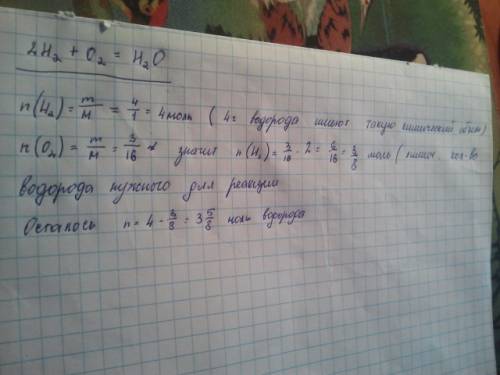 2H₂ + O₂ = H₂O
n(H₂) = m/M = 4/1 = 4 моль ( 4г водорода имеют такую химический объем)
n(O₂) = m/M = 3/16 значит n(H₂) = 3/16 · 2 = 6/16 = 3/8 моль ( химич. кол-во
водорода нужного для реакции
Осталось n = 4 - 3/8 = 3 5/8 моль водорода